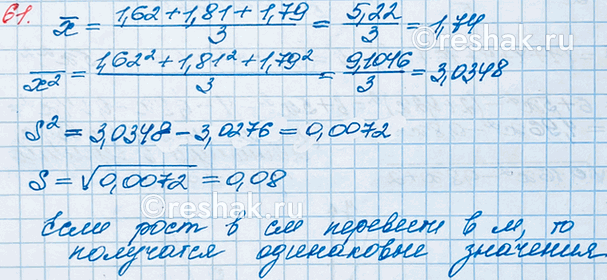 61. x̅ = (1,62 + 1,81 + 1,79)/3 = 5,22/3 = 1,74
x̅² = (1,62² + 1,81² + 1,79²)/3 = 9,1046/3 = 3,0348
S² = 3,0348 − 3,0276 = 0,0072
S = √0,0072 = 0,08
Если рост в см перевести в м, то
получатся одинаковые значения
©5terka.com